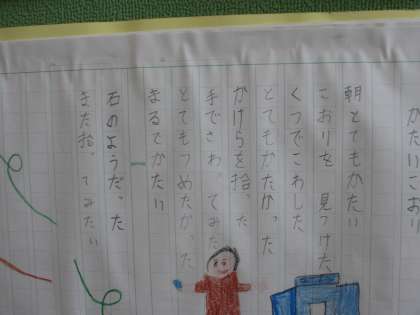 かたいこおり
朝とてもかたい
こおりを見つけた
くつでこわした
とてもかたかった
かけらを拾った
手でさわってみた
とてもつめたかった
まるでかたい
石のようだった
また拾ってみたい